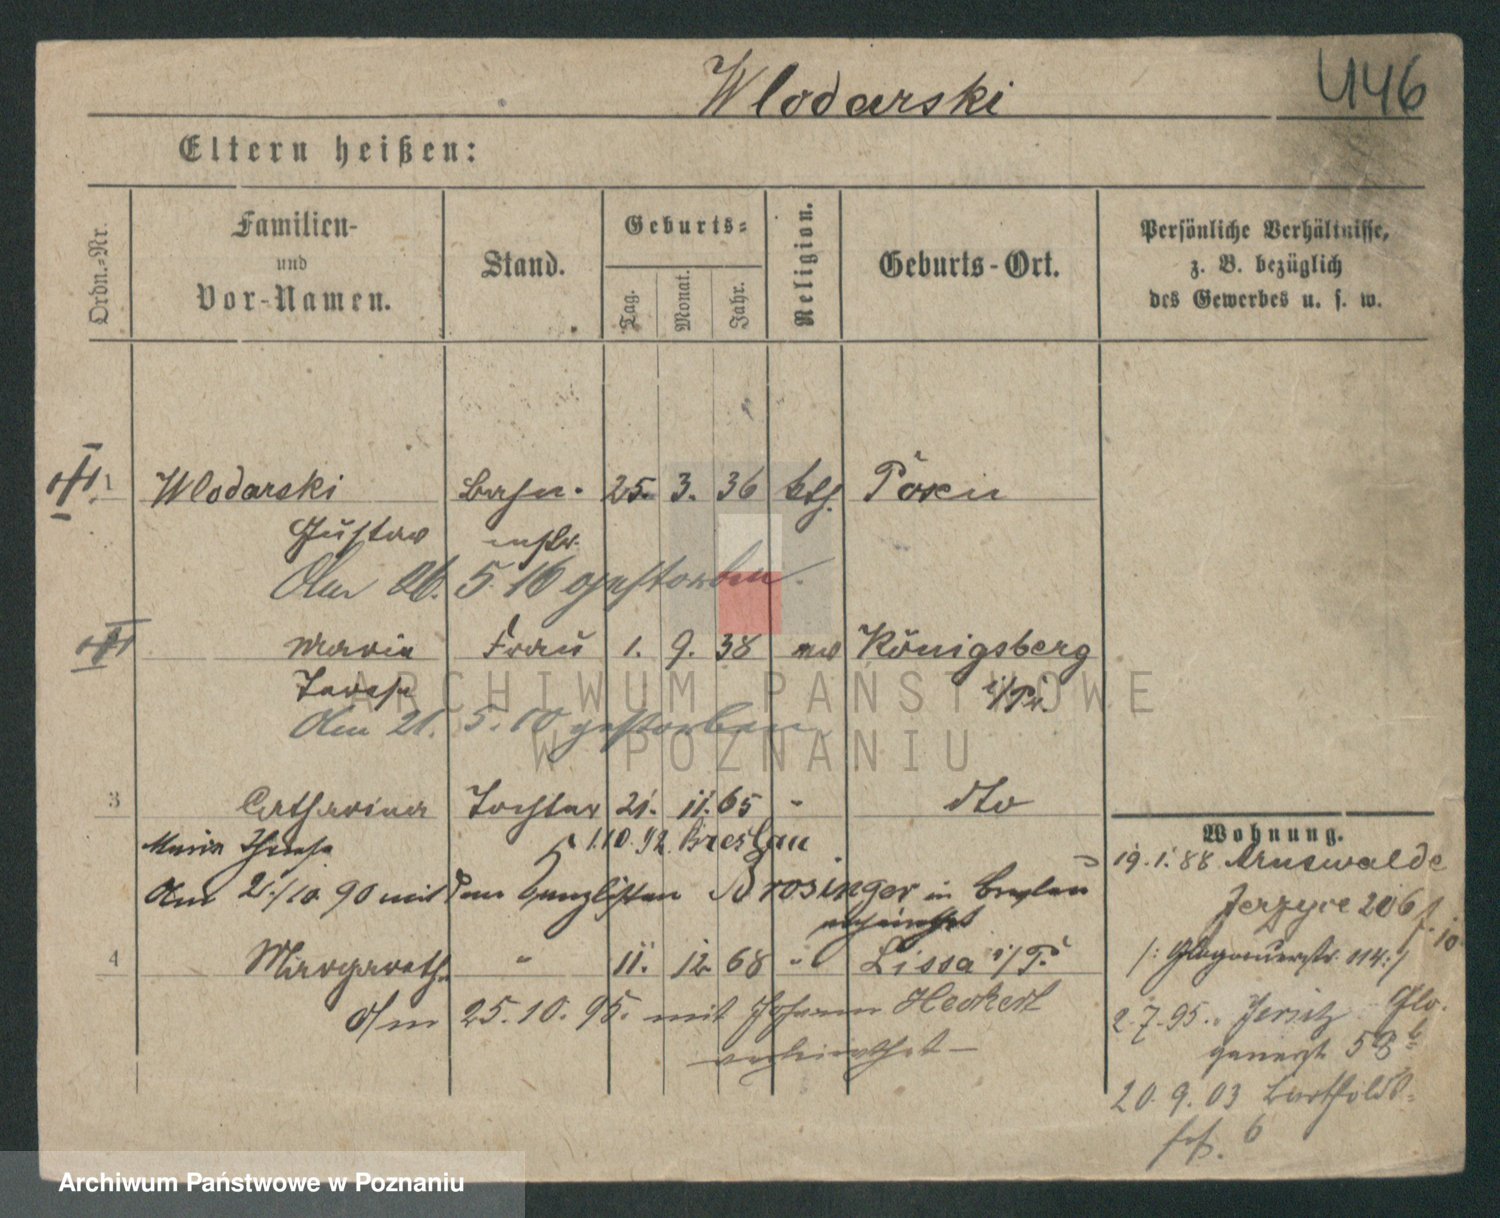 Wlodarski
4146
Eltern heißen:
Ordn.-Nr.
Familien-
und
Vor-Namen.
Stand.
Geburts-
Tag.
Monat.
Jahr.
Religion.
Geburts-Ort.
Persönliche Verhältnisse,
z. B. bezüglich
des Gewerbes u. s. w.
1 Wlodarski Bahn- 25. 3. 36 kth.
Gustav
Am 26. 5. 16 gestorben.
Maria Frau 1. 9. 38 Königsberg
i/Pr.
Am 21. 5. 10 gestorben
3 Catharina Tochter 21. 11. 65 " dto
Maria Theresa 1.10.92. Breslau
Am 21/10 90 mit dem Canzlisten Brosinger in Breslau
verheirathet
4 Margareth. " 11. 12. 68 " Lissa i/P.
Am 25. 10. 95. mit Johann Heckert
verheirathet
Wohnung.
19. 1. 88 Arnswalde
Jerzyce 206
/: Glogauerstr. 114 :/
2. 7. 95. Jersitz Glo-
gauerstr 58
20. 9. 03 Barthold-
str. 6
ARCHIWUM PAŃSTWOWE
W POZNANIU
Archiwum Państwowe w Poznaniu